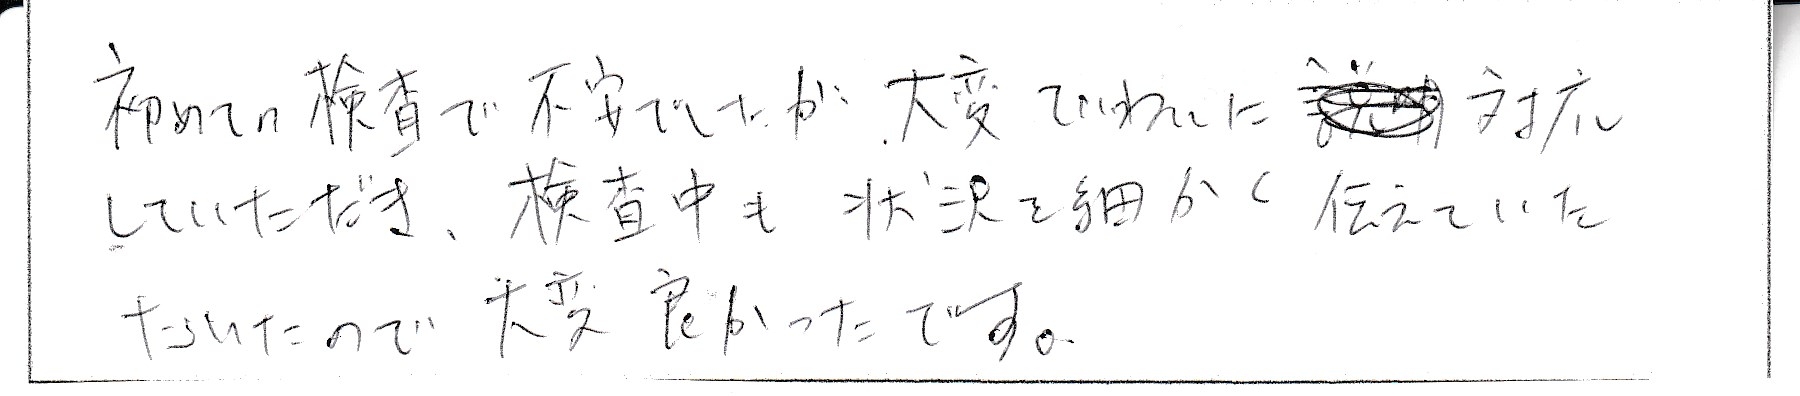 初めての検査で不安でしたが、大変ていねいに対応
していただき、検査中も状況を細かく伝えていた
だいたので大変良かったです。